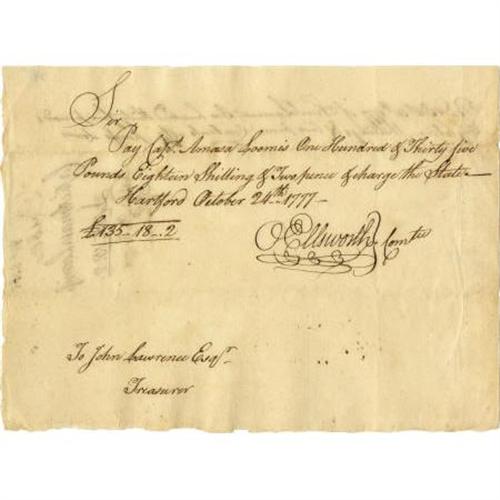 Sir
Pay Capt. Amasa Loomis One Hundred & Thirty five
Pounds Eighteen Shilling & Two pence & charge the State
Hartford October 24th 1777
£135-18-2
O Ellsworth Comtee
To John Lawrence Esqr.
Treasurer